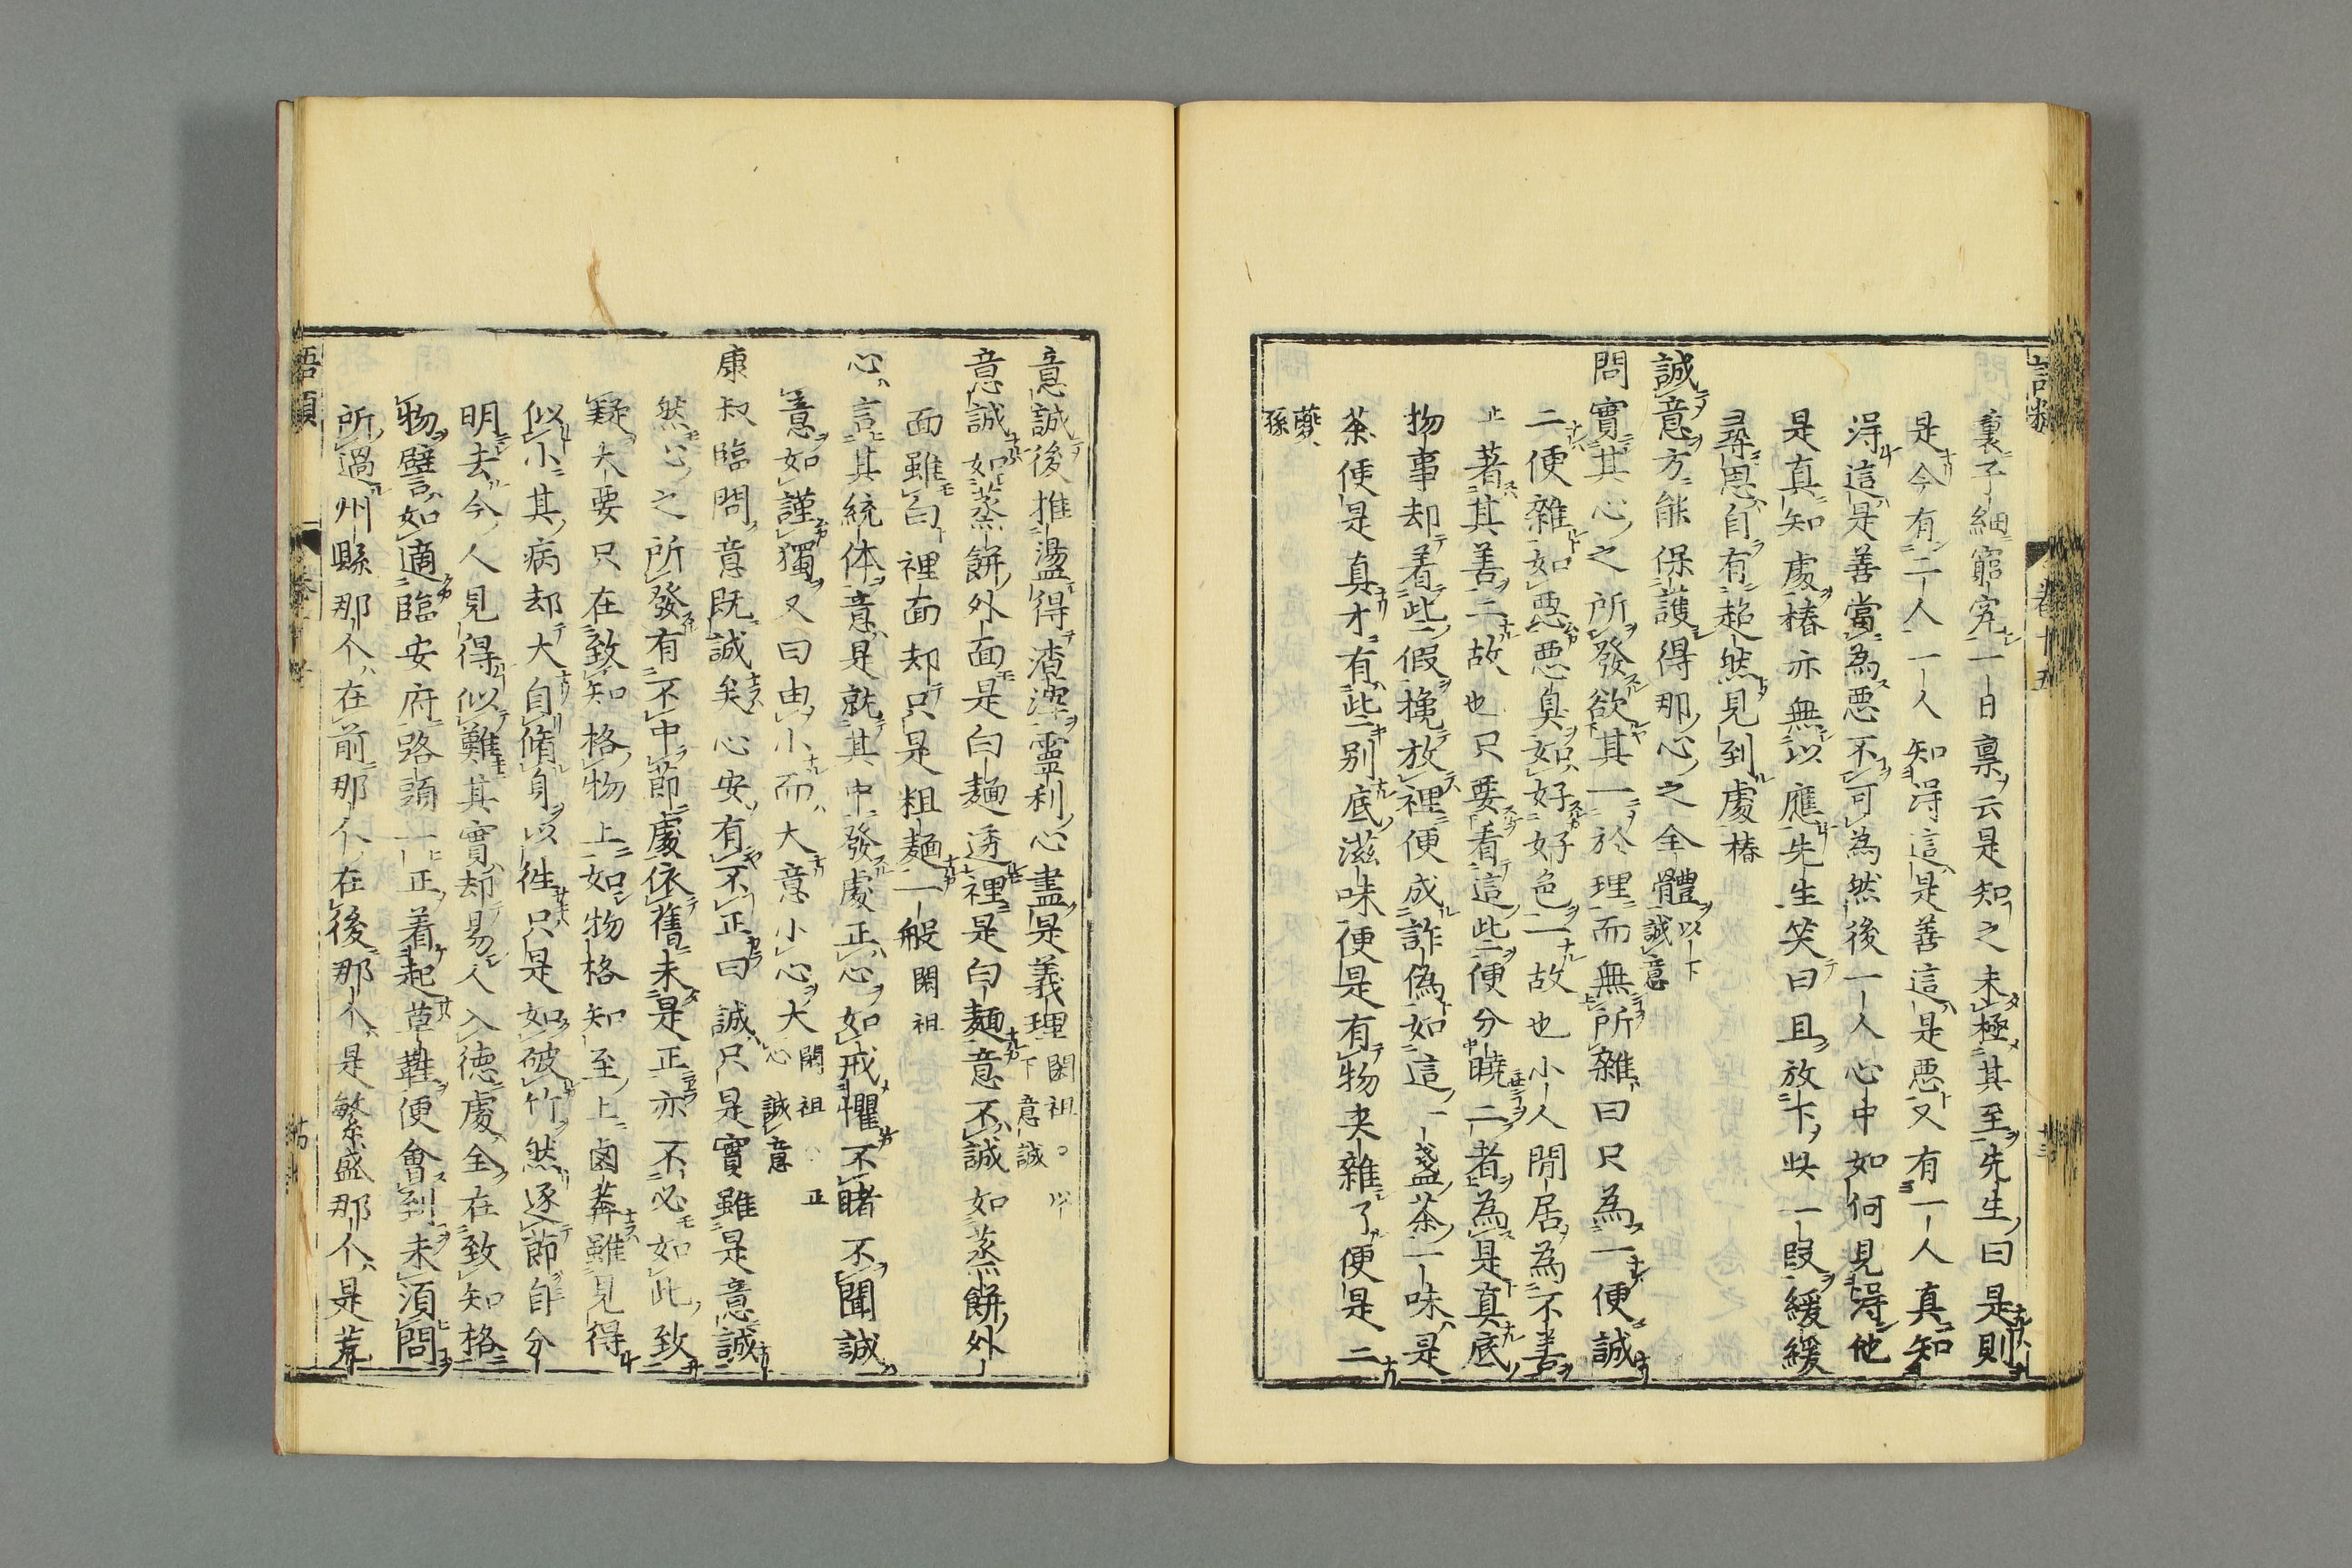 裏子細窮究一日稟云是知之未極其至先生曰是則
是今有二人一人知得這是善這是悪又有一人真知
得這是善當為悪不可為然後一人心中如何見得他
是真知處椿亦無以應先生笑曰且放下此一段緩緩
尋思自有超然見到處椿
誠意方能保護得那心之全體以下誠意
問實其心之所發欲其一於理而無所雜曰只為一便誠
二便雜如悪悪臭如好好色一故也小人閒居為不善
止著其善二故也只要看這些便分曉二者為是真底
物事却着些假攙放裡便成詐偽如這一盞茶一味是
茶便是真才有些別底滋味便是有物夾雜了便是二
夔孫
意誠後推盪得渣滓靈利心盡是義理閎祖〇以下意誠
意誠如蒸餅外面是白麺透裡是白麺意不誠如蒸餅外
面雖白裡面却只是粗麺一般閎祖
心言其統体意是就其中發處正心如戒懼不睹不聞誠
意如謹獨又曰由小而大意小心大閎祖正心誠意
康叔臨問意既誠矣心安有不正曰誠只是實雖是意誠
然心之所發有不中節處依舊未是正亦不必如此致
疑大要只在致知格物上如物格知至上鹵莽雖見得
似小其病却大自脩身以往只是如破竹然逐節自分
明去今人見得似難其實却易人入德處全在致知格
物譬如適臨安府路頭一正着起草鞋便會到未須問
所過州縣那个在前那个在後那个是繁盛那个是荒
語類